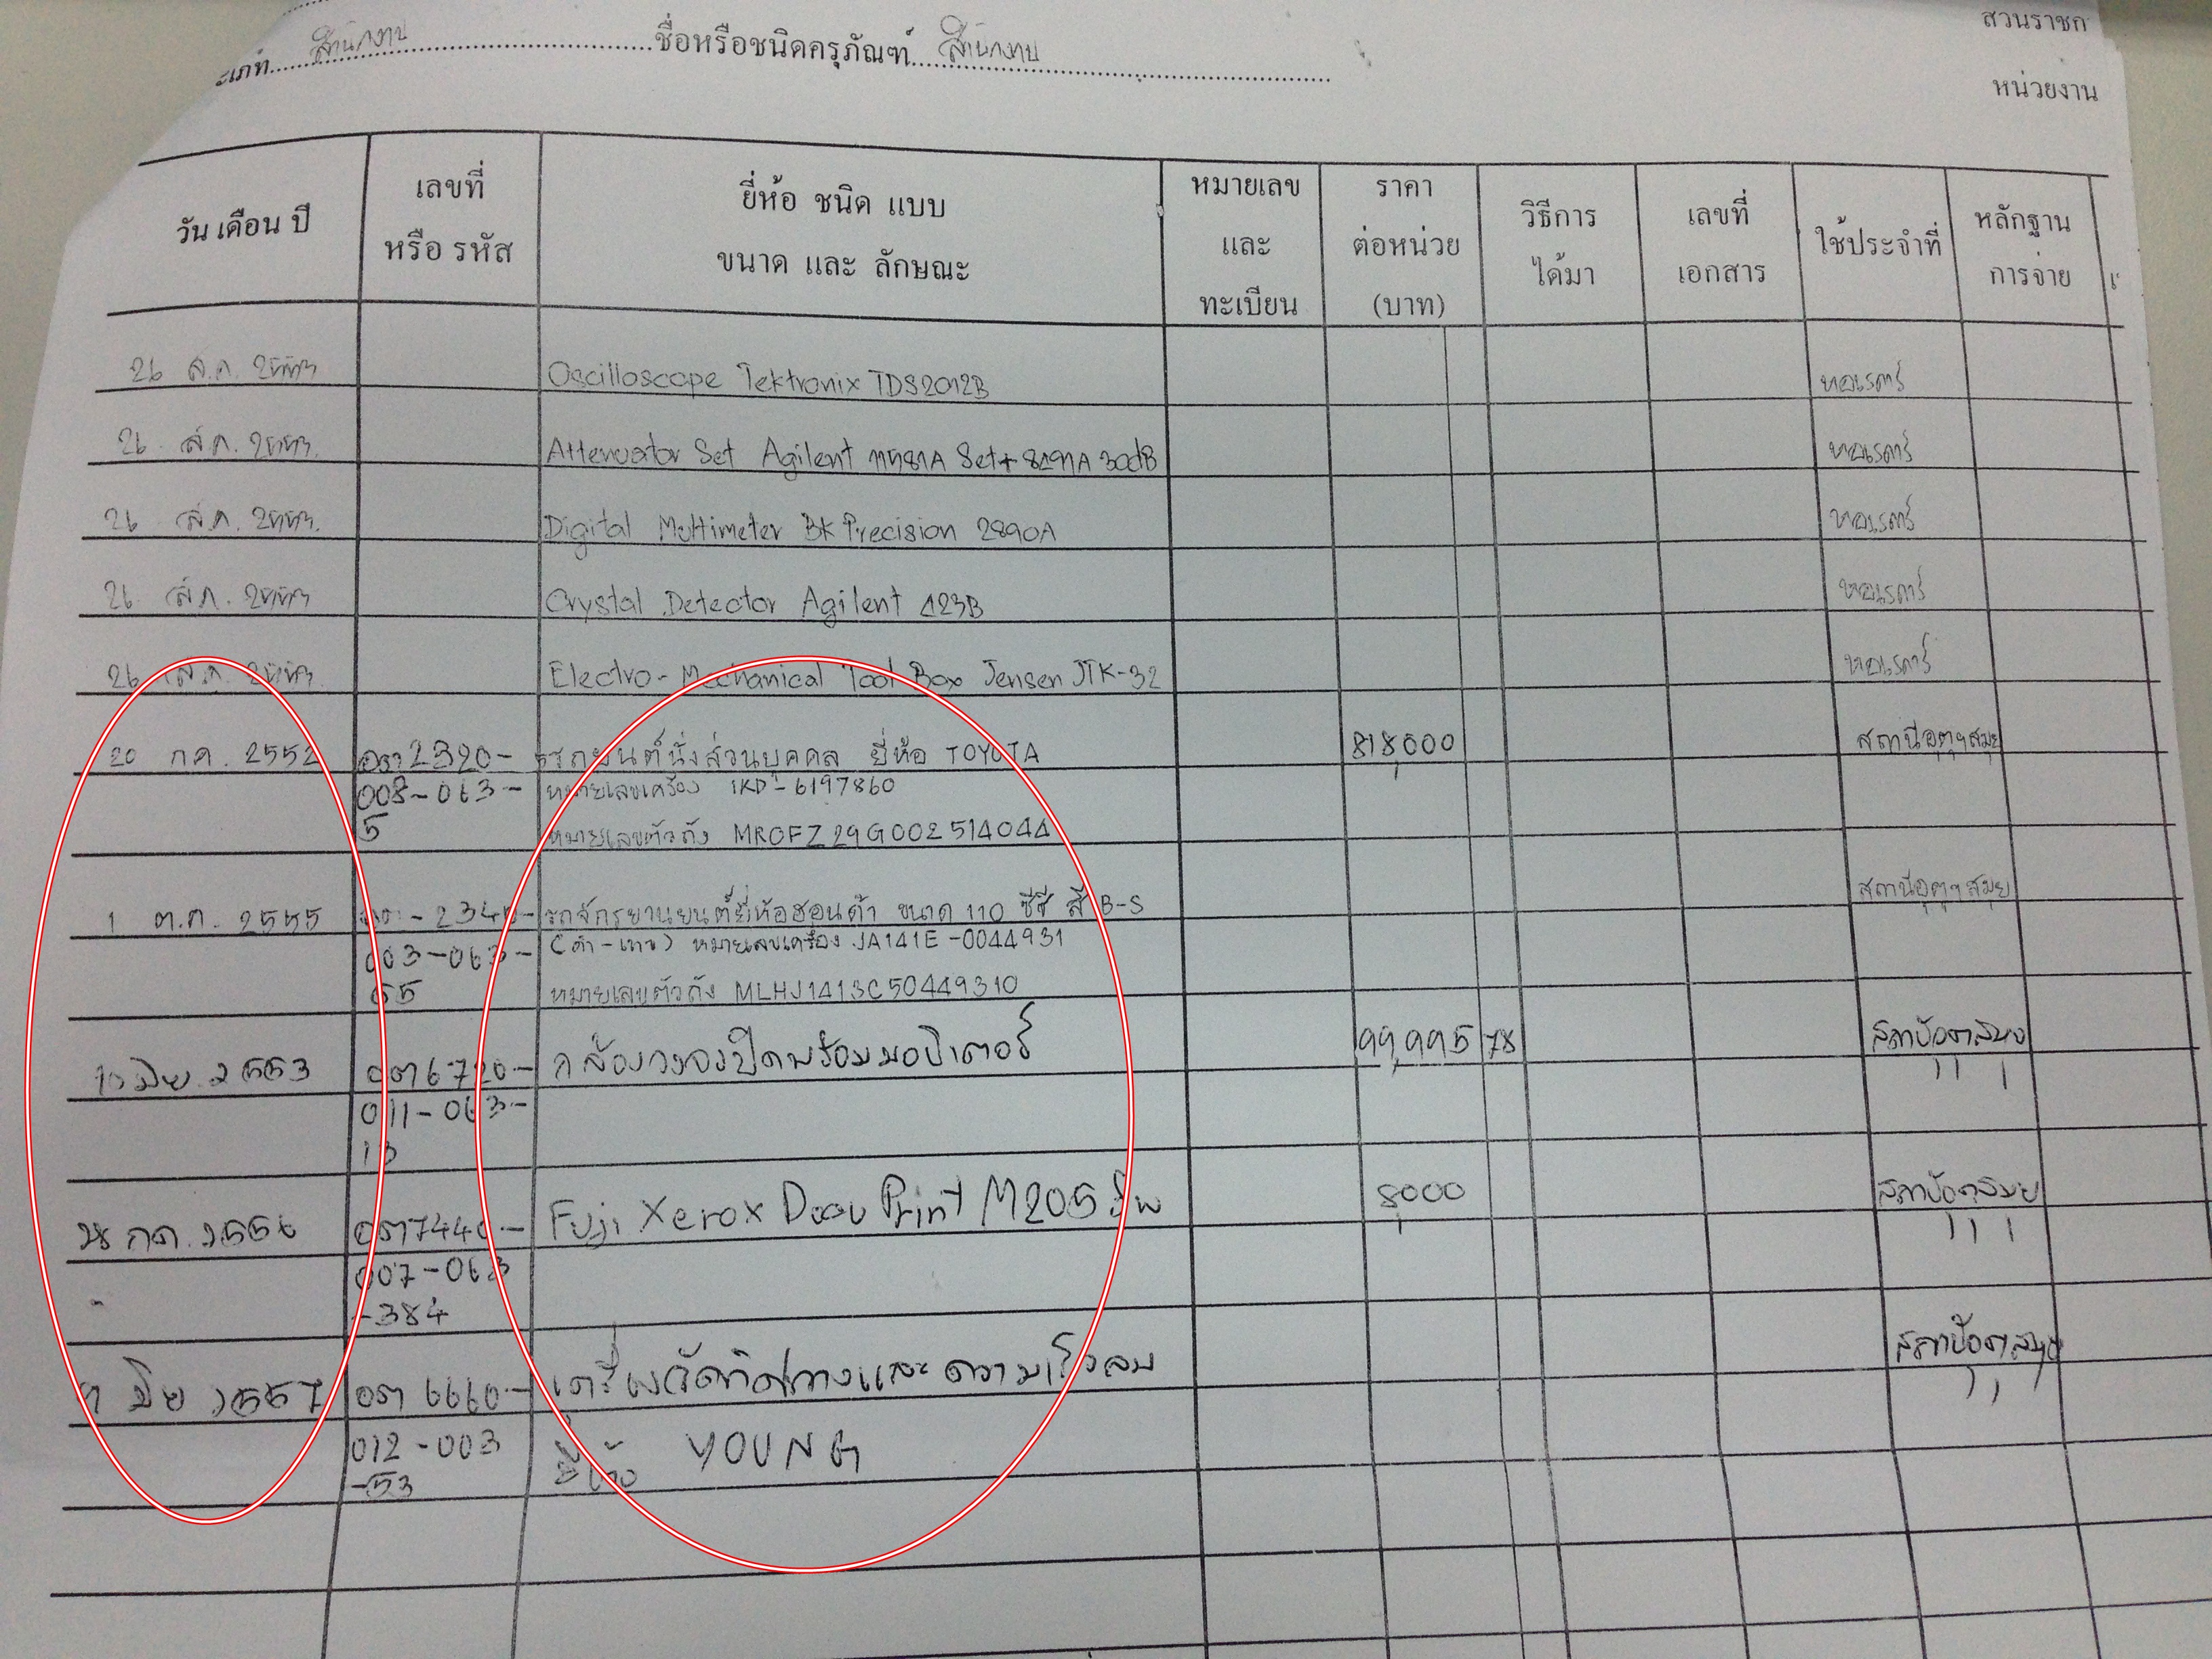 สวนราชก
ะเภท สำนักงาน ชื่อหรือชนิดครุภัณฑ์ สำนักงาน
หน่วยงาน
วัน เดือน ปี
เลขที่
หรือ รหัส
ยี่ห้อ ชนิด แบบ
ขนาด และ ลักษณะ
หมายเลข
และ
ทะเบียน
ราคา
ต่อหน่วย
(บาท)
วิธีการ
ได้มา
เลขที่
เอกสาร
ใช้ประจำที่
หลักฐาน
การจ่าย
26 ส.ค. 2553 Oscilloscope Tektronix TDS2012B หอเรดาร์
26 ส.ค. 2553 Attenuator Set Agilent 11581A Set+8491A 30dB หอเรดาร์
26 ส.ค. 2553 Digital Multimeter BK Precision 2890A หอเรดาร์
26 ส.ค. 2553 Crystal Detector Agilent 423B หอเรดาร์
26 ส.ค. 2553 Electro-Mechanical Tool Box Jensen JTK-32 หอเรดาร์
20 กค. 2552 อต 2320- รถยนต์นั่งส่วนบุคคล ยี่ห้อ TOYOTA 818,000 สถานีอุตุฯสมุย
008-063- หมายเลขเครื่อง 1KD-6197860
5 หมายเลขตัวถัง MROFZ29G002514044
1 ต.ค. 2555 รถจักรยานยนต์ยี่ห้อฮอนด้า ขนาด 110 ซีซี สี B-S สถานีอุตุฯสมุย
003-063- (ดำ-เทา) หมายเลขเครื่อง JA141E-0044931
55 หมายเลขตัวถัง MLHJ1413C50449310
มิย 2553 อต 6720- กล้องวงจรปิดพร้อมมอนิเตอร์ 99,995 78 สถานีอุตุฯสมุย
011-063-
13
กค. 2556 อต 7440- Fuji Xerox Docu Print M205 8,000 สถานีอุตุฯสมุย
007-063
-384
มิย 2557 อต 6660- เครื่องวัดทิศทางและความเร็วลม สถานีอุตุฯสมุย
012-003 ยี่ห้อ YOUNG
-53